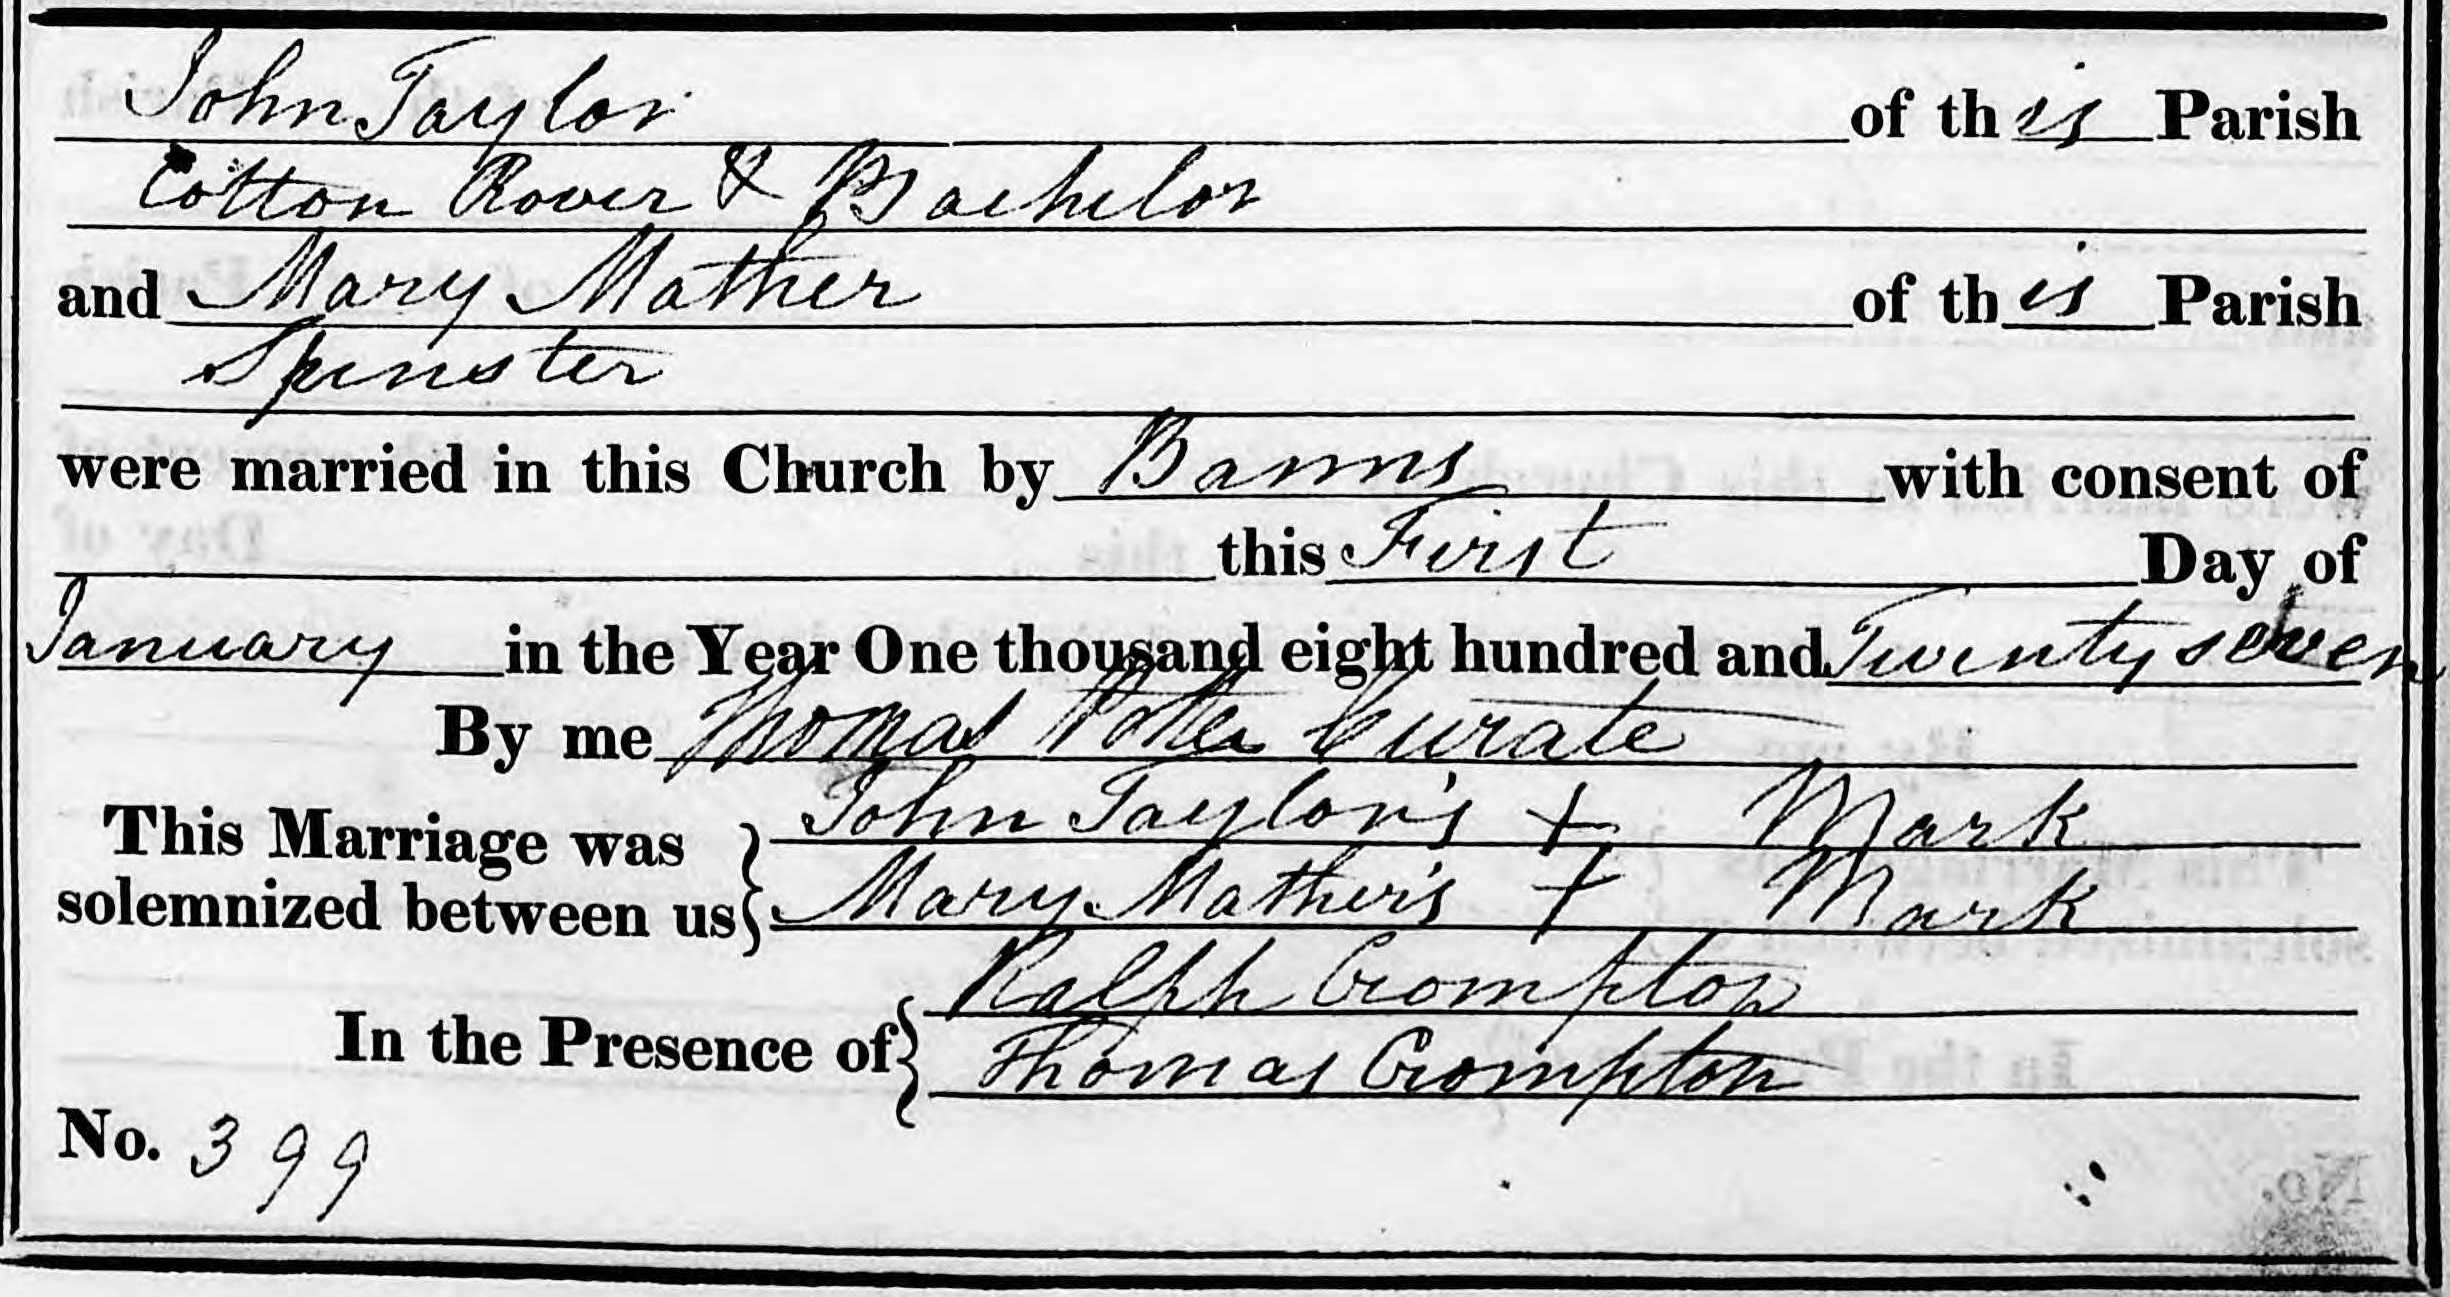 John Taylor of this Parish
Cotton Rover & Bachelor
and Mary Mather of this Parish
Spinster
were married in this Church by Banns with consent of
this First Day of
January in the Year One thousand eight hundred and Twenty seven
By me Thomas Curate
This Marriage was John Taylor's + Mark
solemnized between us Mary Mather's + Mark
Ralph Crompton
In the Presence of
Thomas Crompton
No. 399